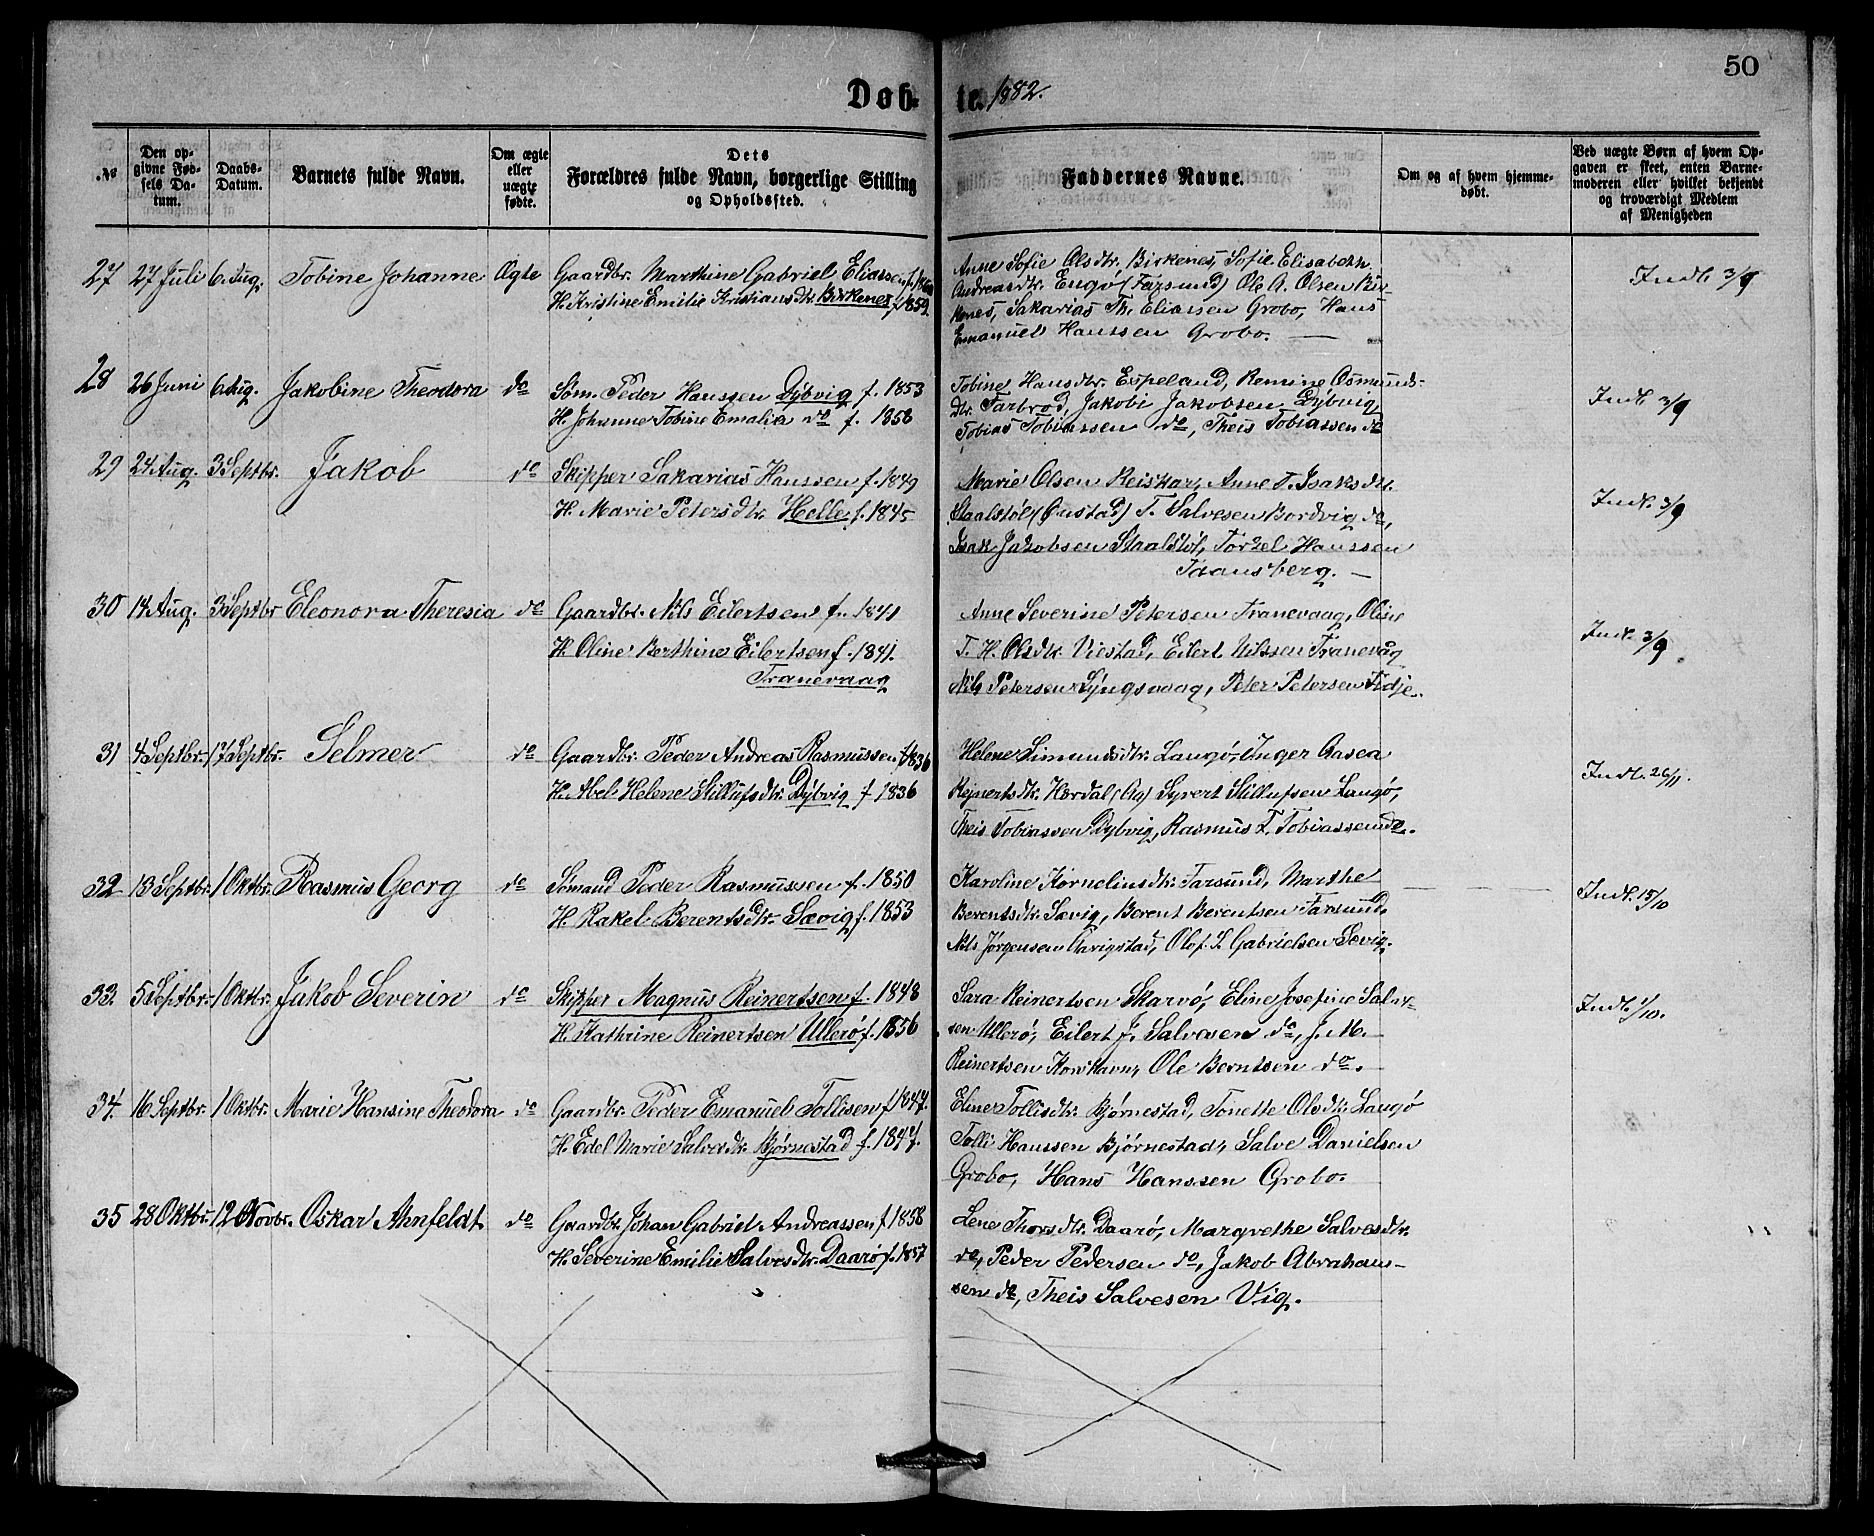 50
Døb-
te. 1882.
No
Den op-
givne Fød-
sels Da-
tum.
Daabs-
Datum.
Barnets fulde Navn.
Om ægte
eller
uægte
fødte.
Dets
Forældres fulde Navn, borgerlige Stilling
og Opholdssted.
Faddernes Navne.
Om og af hvem hjemme-
døbt.
Ved uægte Børn af hvem Op-
gaven er skeet, enten Barne-
moderen eller hvilket bekjendt
og troværdigt Medlem
af Menigheden
27 27 Juli 6 Aug. Tobine Johanne Ægte
Gaardbr. Marthine Gabriel Eliassen f.
H. Kristine Emilie Kristiansdtr. Birkenes f 1859.
Anne Sofie Olsdtr. Birkenes, Sofie Elisabeth
Andreasdtr. Engø (Farsund) Ole A. Olsen Bir-
kenes, Sakarias Th. Eliassen Grobo, Hans
Emanuel Hanssen Grobo. —
Indl. 3/9
28 26 Juni 6 Aug. Jakobine Theodora do
Søm. Peder Hanssen Dybvig f. 1853
H. Johanne Tobine Emalia do f. 1858
Tobine Hansdtr. Espeland, Remine Osmunds-
dtr. Farbrod, Jakobi Jakobsen Dybvig
Tobias Tobiassen do, Theis Tobiassen do
Indl. 3/9
29 24 Aug. 3 Septbr. Jakob do
Skipper Sakarias Hanssen f. 1849
H. Marie Petersdtr. Helle f. 1845
Marie Olsen Reiskar, Anne T. Isaksdtr.
Staalstøl (Onstad) T. Salvesen Bordvig do,
Isak Jakobsen Staalstøl, Torkel Hanssen
Taansberg. —
Indl. 3/9
30 14 Aug. 3 Septbr Eleonora Theresia do
Gaardbr. Nils Eilertsen f. 1841
H. Oline Berthine Eilertsen f. 1841.
Tranevaag
Anne Severine Petersen Tranevaag, Oline
T. H. Olsdtr. Viestad, Eilert Nilssen Tranevåg
Nils Petersen Lyngsvaag, Peter Petersen Fidje.
Indl. 3/9
31 4 Septbr. 17 Septbr. Selmer do
Gaardbr. Peder Andreas Rasmussen f 1836
H. Abel Helene Stillufsdtr. Dybvig f 1836
Helene Simundsdtr. Langø, Inger Aasea
Rejnertsdtr. Hordal (Aa) Syvert Stillufsen Langø,
Theis Tobiassen Dybvig, Rasmus T. Tobiassen do.
Indl. 26/11.
32 13 Septbr. 1 Oktbr. Rasmus Georg do
Sømand Peder Rasmussen f. 1850
H. Rakel Berentsdtr. Sævig f. 1853
Karoline Korneliusdtr. Farsund, Marthe
Berentsdtr. Sævig, Berent Berentsen Farsund,
Nils Jørgensen Aavigstad, Olof. S. Gabrielsen Sævig.
Indl. 15/10
33 5 Septbr. 1 Oktbr. Jakob Severin do
Skipper Magnus Reinertsen f. 1848
H. Kathrine Reinertsen Ullerø f. 1856
Sara Reinertsen Skarvø, Eline Josefine Salve-
sen Ullerø, Eilert J. Salvesen do, J. M.
Reinertsen Korshavn, Ole Berntsen do.
Indl. 1/10.
34. 16 Septbr. 1 Oktbr. Marie Hansine Theodora do
Gaardbr. Peder Emanuel Tollisen f 1847.
H. Edel Marie Salvesdtr. Bjørnestad f. 1847.
Eline Tollisdtr. Bjørnestad, Tonette Olsdtr. Langø
Tolli Hanssen Bjørnestad, Salve Danielsen
Grobo, Hans Hanssen Grobo.
35 28 Oktbr. 12 Novbr. Oskar Ahnfeldt do
Gaardbr. Johan Gabriel Andreassen f 1858
H. Severine Emilie Salvesdtr. Daarø f. 1857
Lene Thorsdtr. Daarø, Margrethe Salvesdtr.
do, Peder Pedersen do, Jakob Abraham-
sen do, Theis Salvesen Vig.